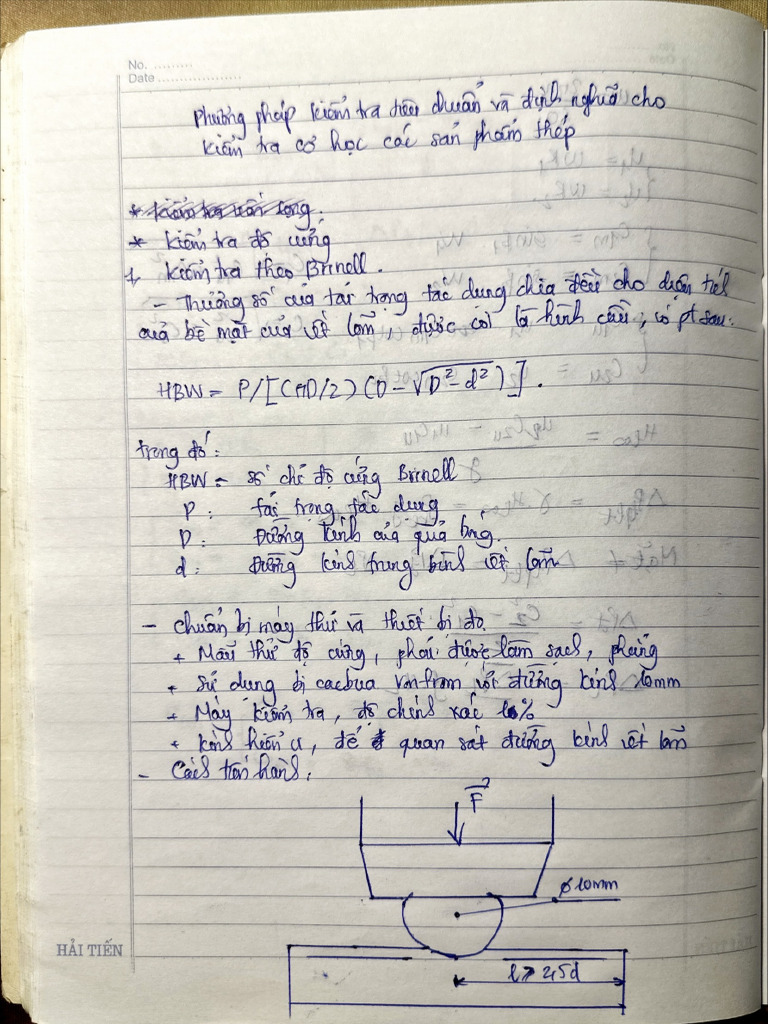 No. .........
Date ....................
Phương pháp kiểm tra tiêu chuẩn và định nghĩa cho
kiểm tra cơ học các sản phẩm thép
* kiểm tra độ cứng
1, kiểm tra theo Brinell.
- Thương số của tải trọng tác dụng chia đều cho diện tích
của bề mặt của vết lõm, được coi là hình cầu, có pt sau:
HBW = P/[(πD/2)(D-√D²-d²)].
trong đó:
HBW = số chỉ độ cứng Brinell
P: tải trọng tác dụng
D: Đường kính của quả bóng.
d: Đường kính trung bình vết lõm
- chuẩn bị máy thử và thiết bị đo.
+ Mẫu thử độ cứng, phải được làm sạch, phẳng
+ Sử dụng bi cacbua vonfram với đường kính 10mm
+ Máy kiểm tra, độ chính xác %
+ kính hiển vi, để quan sát đường kính vết lõm
- Cách tiến hành.
F
ø10mm
l ≥ 2,5d
HẢI TIẾN